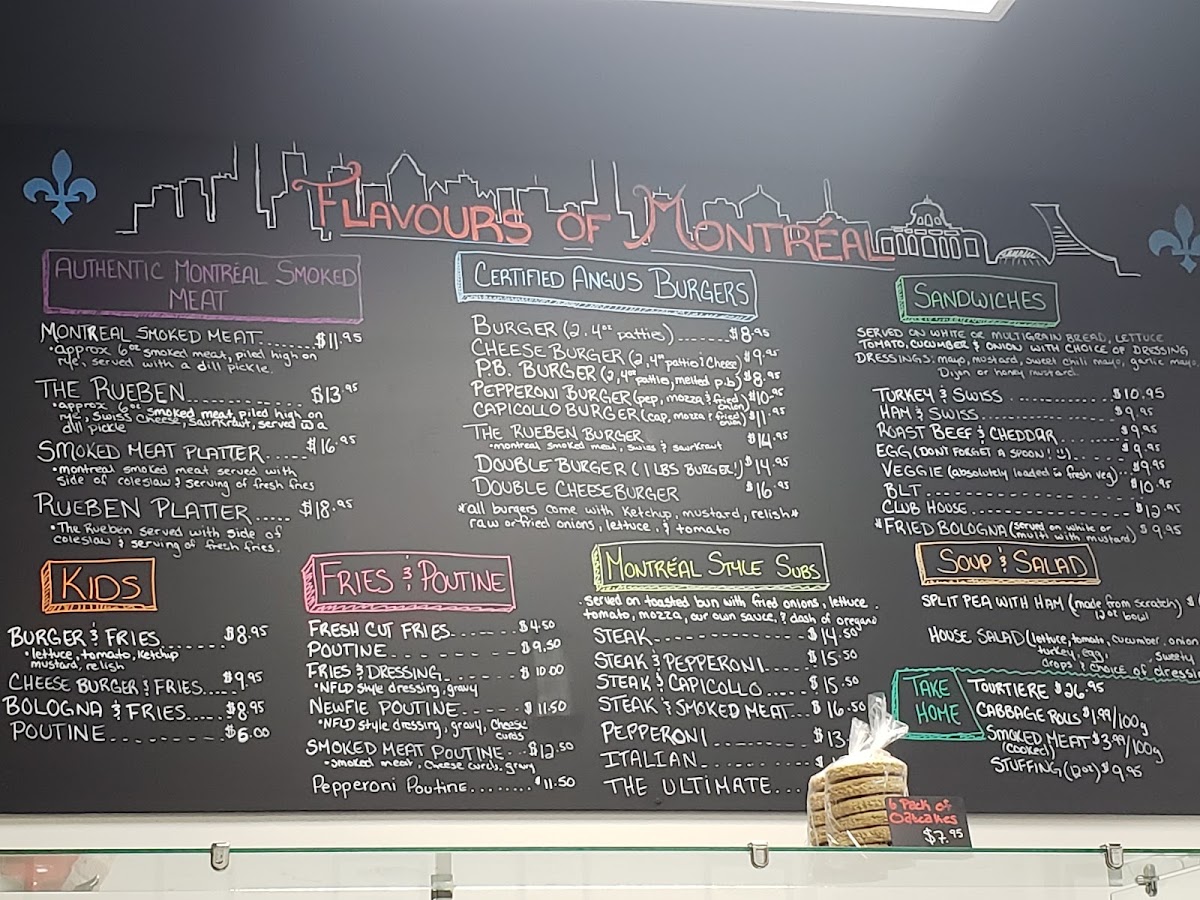 FLAVOURS OF MONTRÉAL
AUTHENTIC MONTRÉAL SMOKED
MEAT
MONTREAL SMOKED MEAT......$11.95
•approx 6oz smoked meat, piled high on
rye, served with a dill pickle.
THE RUEBEN............$13.95
•approx 6oz smoked meat, piled high on
rye, Swiss Cheese, Saurkraut, served w a
dill pickle
SMOKED MEAT PLATTER.....$16.95
•montreal smoked meat served with
side of coleslaw & serving of fresh fries
RUEBEN PLATTER.....$18.95
•The Rueben served with side of
coleslaw & serving of fresh fries.
CERTIFIED ANGUS BURGERS
BURGER (2, 4oz patties).......$8.95
CHEESE BURGER (2, 4oz patties & Cheese) $9.95
P.B. BURGER (2, 4oz patties, melted p.b) $8.95
PEPPERONI BURGER (pep, mozza & fried onion) $10.95
CAPICOLLO BURGER (cap, mozza & fried onion) $11.95
THE RUEBEN BURGER $14.95
•montreal smoked meat, swiss & saurkraut
DOUBLE BURGER (1 LBS BURGER!) $14.95
DOUBLE CHEESEBURGER $16.95
*all burgers come with Ketchup, mustard, relish*
raw or fried onions, lettuce, & tomato
SANDWICHES
SERVED ON WHITE OR MULTIGRAIN BREAD, LETTUCE
TOMATO, CUCUMBER & ONION WITH CHOICE OF DRESSING
DRESSINGS: mayo, mustard, sweet chili mayo, garlic mayo,
Dijon or honey mustard.
TURKEY & SWISS..........$10.95
HAM & SWISS............$9.95
ROAST BEEF & CHEDDAR........$9.95
EGG (DON'T FORGET A SPOON! :)).....$9.95
VEGGIE (absolutely loaded w fresh veg).$9.95
BLT....................$10.95
CLUB HOUSE..............$12.95
*FRIED BOLOGNA (served on white or multi with mustard) $9.95
KIDS
BURGER & FRIES........$8.95
•lettuce, tomato, Ketchup
mustard, relish
CHEESE BURGER & FRIES.....$9.95
BOLOGNA & FRIES.....$8.95
POUTINE..........$6.00
FRIES & POUTINE
FRESH CUT FRIES.......$4.50
POUTINE..............$9.50
FRIES & DRESSING........$10.00
•NFLD Style dressing, gravy
NEWFIE POUTINE........$11.50
•NFLD Style dressing, gravy, Cheese curds
SMOKED MEAT POUTINE...$12.50
•Smoked meat, Cheese curds, gravy
Pepperoni Poutine........$11.50
MONTRÉAL STYLE SUBS
•served on toasted bun with fried onions, lettuce,
tomato, mozza, our own sauce, & dash of oregano
STEAK..............$14.50
STEAK & PEPPERONI.....$15.50
STEAK & CAPICOLLO......$15.50
STEAK & SMOKED MEAT...$16.50
PEPPERONI..........$13
ITALIAN............$
THE ULTIMATE...
SOUP & SALAD
SPLIT PEA WITH HAM (made from scratch) $
12oz bowl
HOUSE SALAD (lettuce, tomato, cucumber, onion
turkey, egg, sweety
drops & choice of dressi
TAKE
HOME
TOURTIERE $26.95
CABBAGE ROLLS $1.99/100g
SMOKED MEAT $3.99/100g
(COOKED)
STUFFING (12oz) $9.95
6 Pack of
Oatcakes
$7.95